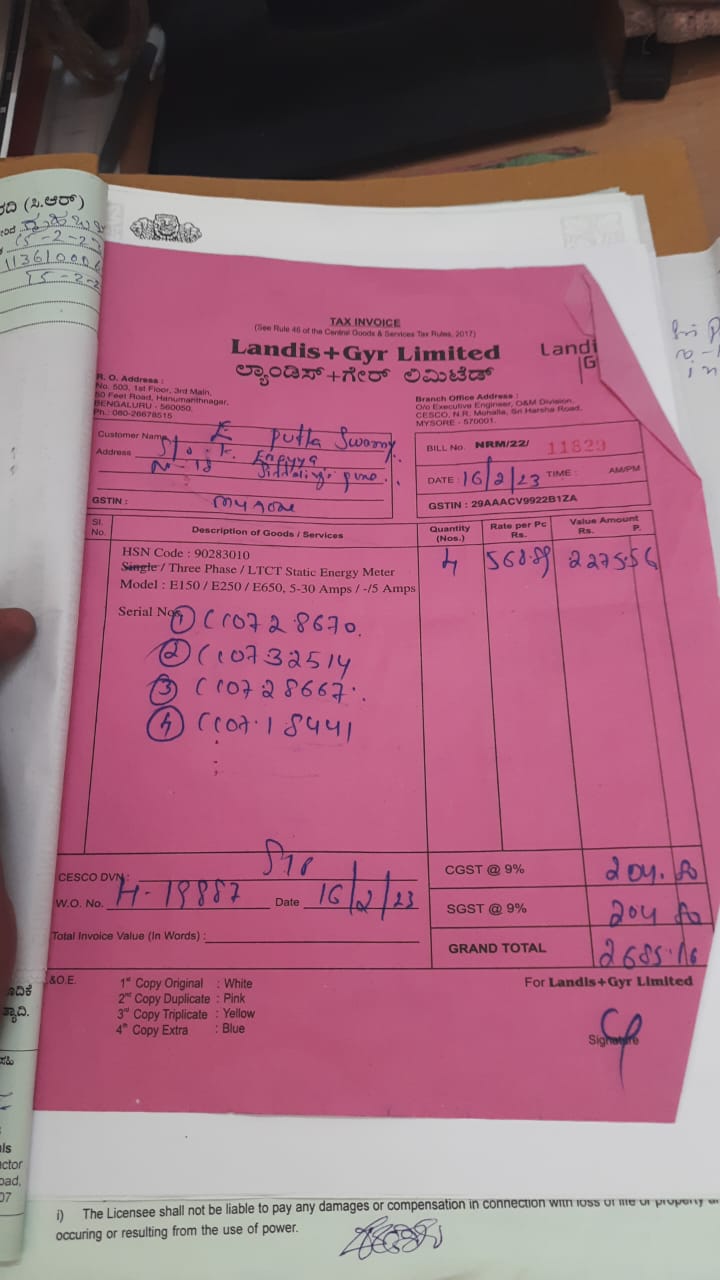 ರದಿ (ಸಿ.ಆರ್)
15-2-2
TAX INVOICE
(See Rule 46 of the Central Goods & Services Tax Rules, 2017)
Landis+Gyr Limited
ಲ್ಯಾಂಡಿಸ್+ಗೇರ್ ಲಿಮಿಟೆಡ್
Landi
G
R. O. Address :
No. 503, 1st Floor, 3rd Main,
50 Feet Road, Hanumanthnagar,
BENGALURU - 560050.
Ph.: 080-26678515
Branch Office Address :
O/o Executive Engineer, O&M Division,
CESCO, N.R. Mohalla, Sri Harsha Road,
MYSORE - 570001.
Customer Name E Putta Swamy
Address
GSTIN : mysore
BILL No. NRM/22/ 11829
DATE : 16/2/23 TIME : AM/PM
GSTIN : 29AAACV9922B1ZA
Sl. No. Description of Goods / Services Quantity (Nos.) Rate per Pc Rs. Value Amount Rs. P.
HSN Code : 90283010
Single / Three Phase / LTCT Static Energy Meter 4 568.89 2275.56
Model : E150 / E250 / E650, 5-30 Amps / -/5 Amps
Serial Nos.
1 C10728670
2 C10732514
3 C10728667
4 C10718441
CESCO DVN :
W.O. No. H-19887 Date 16/2/23
Total Invoice Value (In Words) :
CGST @ 9% 204.80
SGST @ 9% 204.80
GRAND TOTAL 2685.16
&O.E.
1st Copy Original : White
2nd Copy Duplicate : Pink
3rd Copy Triplicate : Yellow
4th Copy Extra : Blue
For Landis+Gyr Limited
Signature
i) The Licensee shall not be liable to pay any damages or compensation in connection with loss of life or property
occuring or resulting from the use of power.